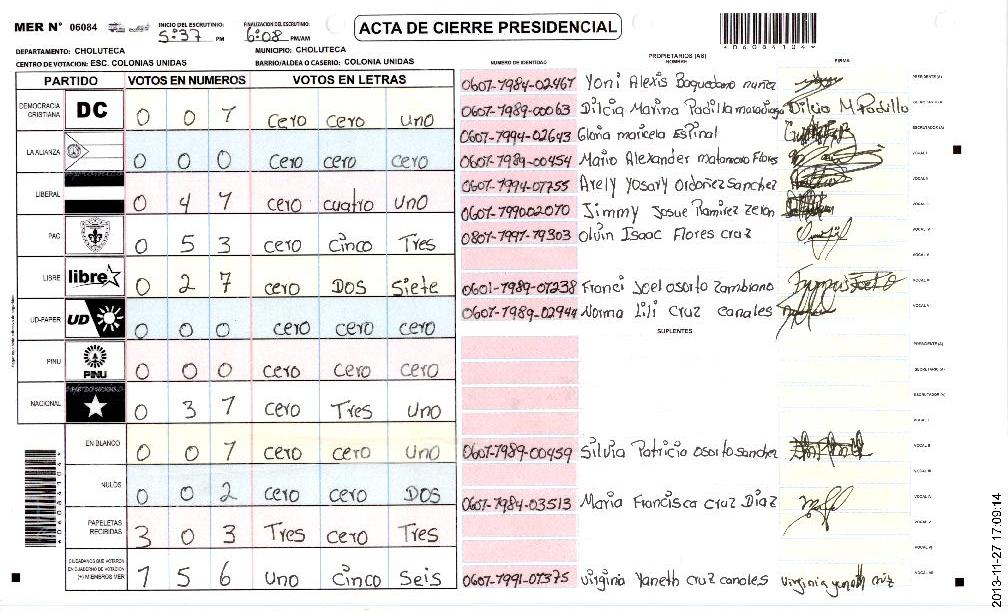 MER N° 06084
INICIO DEL ESCRUTINIO: 5:37 PM
FINALIZACION DEL ESCRUTINIO: 6:08 PM/AM
ACTA DE CIERRE PRESIDENCIAL
*06084104*
DEPARTAMENTO: CHOLUTECA
MUNICIPIO: CHOLUTECA
CENTRO DE VOTACION: ESC. COLONIAS UNIDAS
BARRIO/ALDEA O CASERIO: COLONIA UNIDAS
PARTIDO VOTOS EN NUMEROS VOTOS EN LETRAS
DEMOCRACIA CRISTIANA DC 0 0 1 cero cero uno
LA ALIANZA 0 0 0 cero cero cero
LIBERAL 0 4 1 cero cuatro uno
PAC 0 5 3 cero cinco Tres
LIBRE libre 0 2 7 cero DOS Siete
UD-FAPER UD 0 0 0 cero cero cero
PINU PINU 0 0 0 cero cero cero
NACIONAL 0 3 1 cero Tres uno
EN BLANCO 0 0 1 cero cero uno
NULOS 0 0 2 cero cero DOS
PAPELETAS RECIBIDAS 3 0 3 Tres cero Tres
CIUDADANOS QUE VOTARON EN CUADERNO DE VOTACION (+) MIEMBROS MER 1 5 6 uno Cinco Seis
*06084104*
NUMERO DE IDENTIDAD PROPIETARIOS (AS) NOMBRE FIRMA
0601-1984-02467 Yoni Alexis Baquedano nuñez PRESIDENTE(A)
0601-1989-00063 Dilcia Marina Padilla maradiaga Dilcia M Padillo
0601-1994-02643 Gloria maricela Espinal ESCRUTADOR(A)
0601-1989-00454 Mario Alexander matamoro Flores VOCAL I
0601-1994-01755 Arely Yosary Ordoñez Sanchez VOCAL II
0601-199002070 Jimmy Josue Ramirez Zeron
0801-1991-19303 Olvin Isaac Flores cruz VOCAL IV
VOCAL V
0601-1989-01238 Franci Joel osorto Zambrano
0601-1989-02944 Norma Lili Cruz canales
SUPLENTES
PRESIDENTE(A)
SECRETARIO(A)
ESCRUTADOR(A)
VOCAL I
0601-1989-00459 Silvia Patricia osorto sanchez VOCAL II
VOCAL III
0601-1984-03513 Maria Francisca Cruz Diaz VOCAL IV
VOCAL V
VOCAL VI
0601-1991-01375 virginia Yaneth cruz canales
2013-11-27 17:09:14